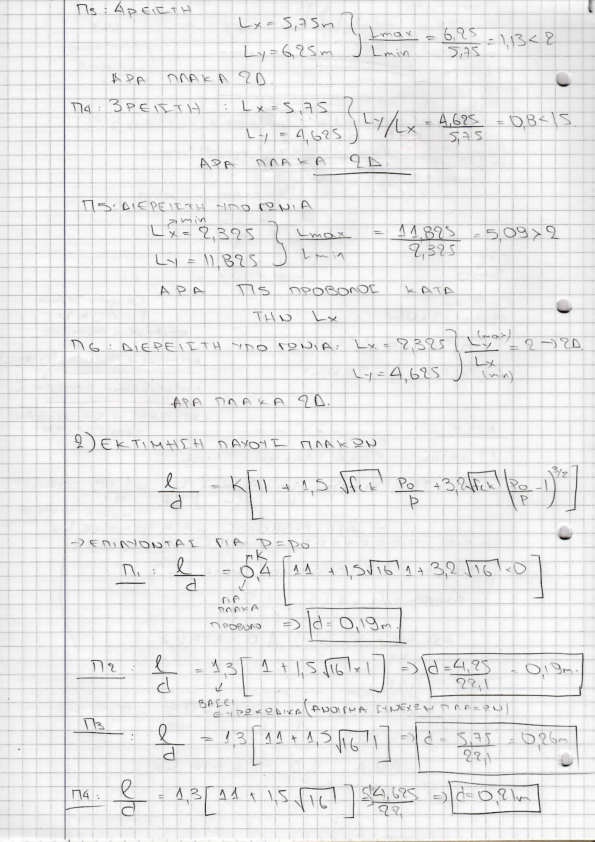 Π3: 4ΡΕΙΣΤΗ
Lx = 5,75m
Ly = 6,25m } Lmax/Lmin = 6,25/5,75 = 1,13 < 2
ΑΡΑ ΠΛΑΚΑ 2Δ.
Π4: 3ΡΕΙΣΤΗ : Lx = 5,75
Ly = 4,625 } Ly/Lx = 4,625/5,75 = 0,8 < 1,5.
ΑΡΑ ΠΛΑΚΑ 2Δ.
Π5: ΔΙΕΡΕΙΣΤΗ ΥΠΟ ΓΩΝΙΑ
Lx = 2,325 → min
Ly = 11,825 } Lmax/Lmin = 11,825/2,325 = 5,09 > 2
ΑΡΑ Π5 ΠΡΟΒΟΛΟΣ ΚΑΤΑ
ΤΗΝ Lx
Π6: ΔΙΕΡΕΙΣΤΗ ΥΠΟ ΓΩΝΙΑ: Lx = 2,325
Ly = 4,625 } Ly (max)/Lx (min) = 2 → 2Δ.
ΑΡΑ ΠΛΑΚΑ 2Δ.
2) ΕΚΤΙΜΗΣΗ ΠΑΧΟΥΣ ΠΛΑΚΩΝ
l/d = K[11 + 1,5 √fck ρο/ρ + 3,2√fck (ρο/ρ - 1)^3/2]
→ ΕΠΙΛΥΟΝΤΑΣ ΓΙΑ ρ = ρο
Π1: l/d = 0,4 [11 + 1,5√16 1 + 3,2 √16 × 0]
K
ΓΙΑ
ΠΛΑΚΑ
ΠΡΟΒΟΛΟ => d = 0,19m.
Π2: l/d = 1,3[1 + 1,5 √16 × 1] => d = 4,25/22,1 = 0,19m.
ΒΑΣΕΙ
ΕΥΡΩΚΩΔΙΚΑ (ΑΝΟΙΓΜΑ ΣΥΝΕΧΩΝ ΠΛΑΚΩΝ)
Π3: l/d = 1,3[11 + 1,5√16 1] => d = 5,75/22,1 = 0,26m
Π4: l/d = 1,3[11 + 1,5√16] 4,625/22, => d = 0,21m